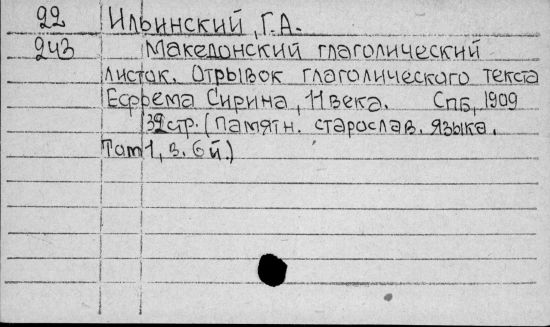 22 Ильинский, Г.А.
243 Македонский глаголический
листок. Отрывок глаголического текста
Ефрема Сирина, 11 века. Спб, 1909
32 стр. (Памятн. старослав. языка.
Том 1, в. 6й.)